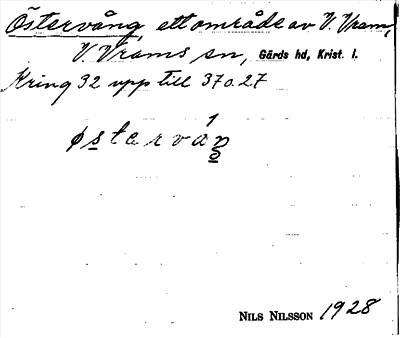 Östervång, ett område av V. Vram,
V. Vrams sn, Gärds hd, Krist. l.
Kring 32 upp till 37 o. 27
østərván
NILS NILSSON 1928